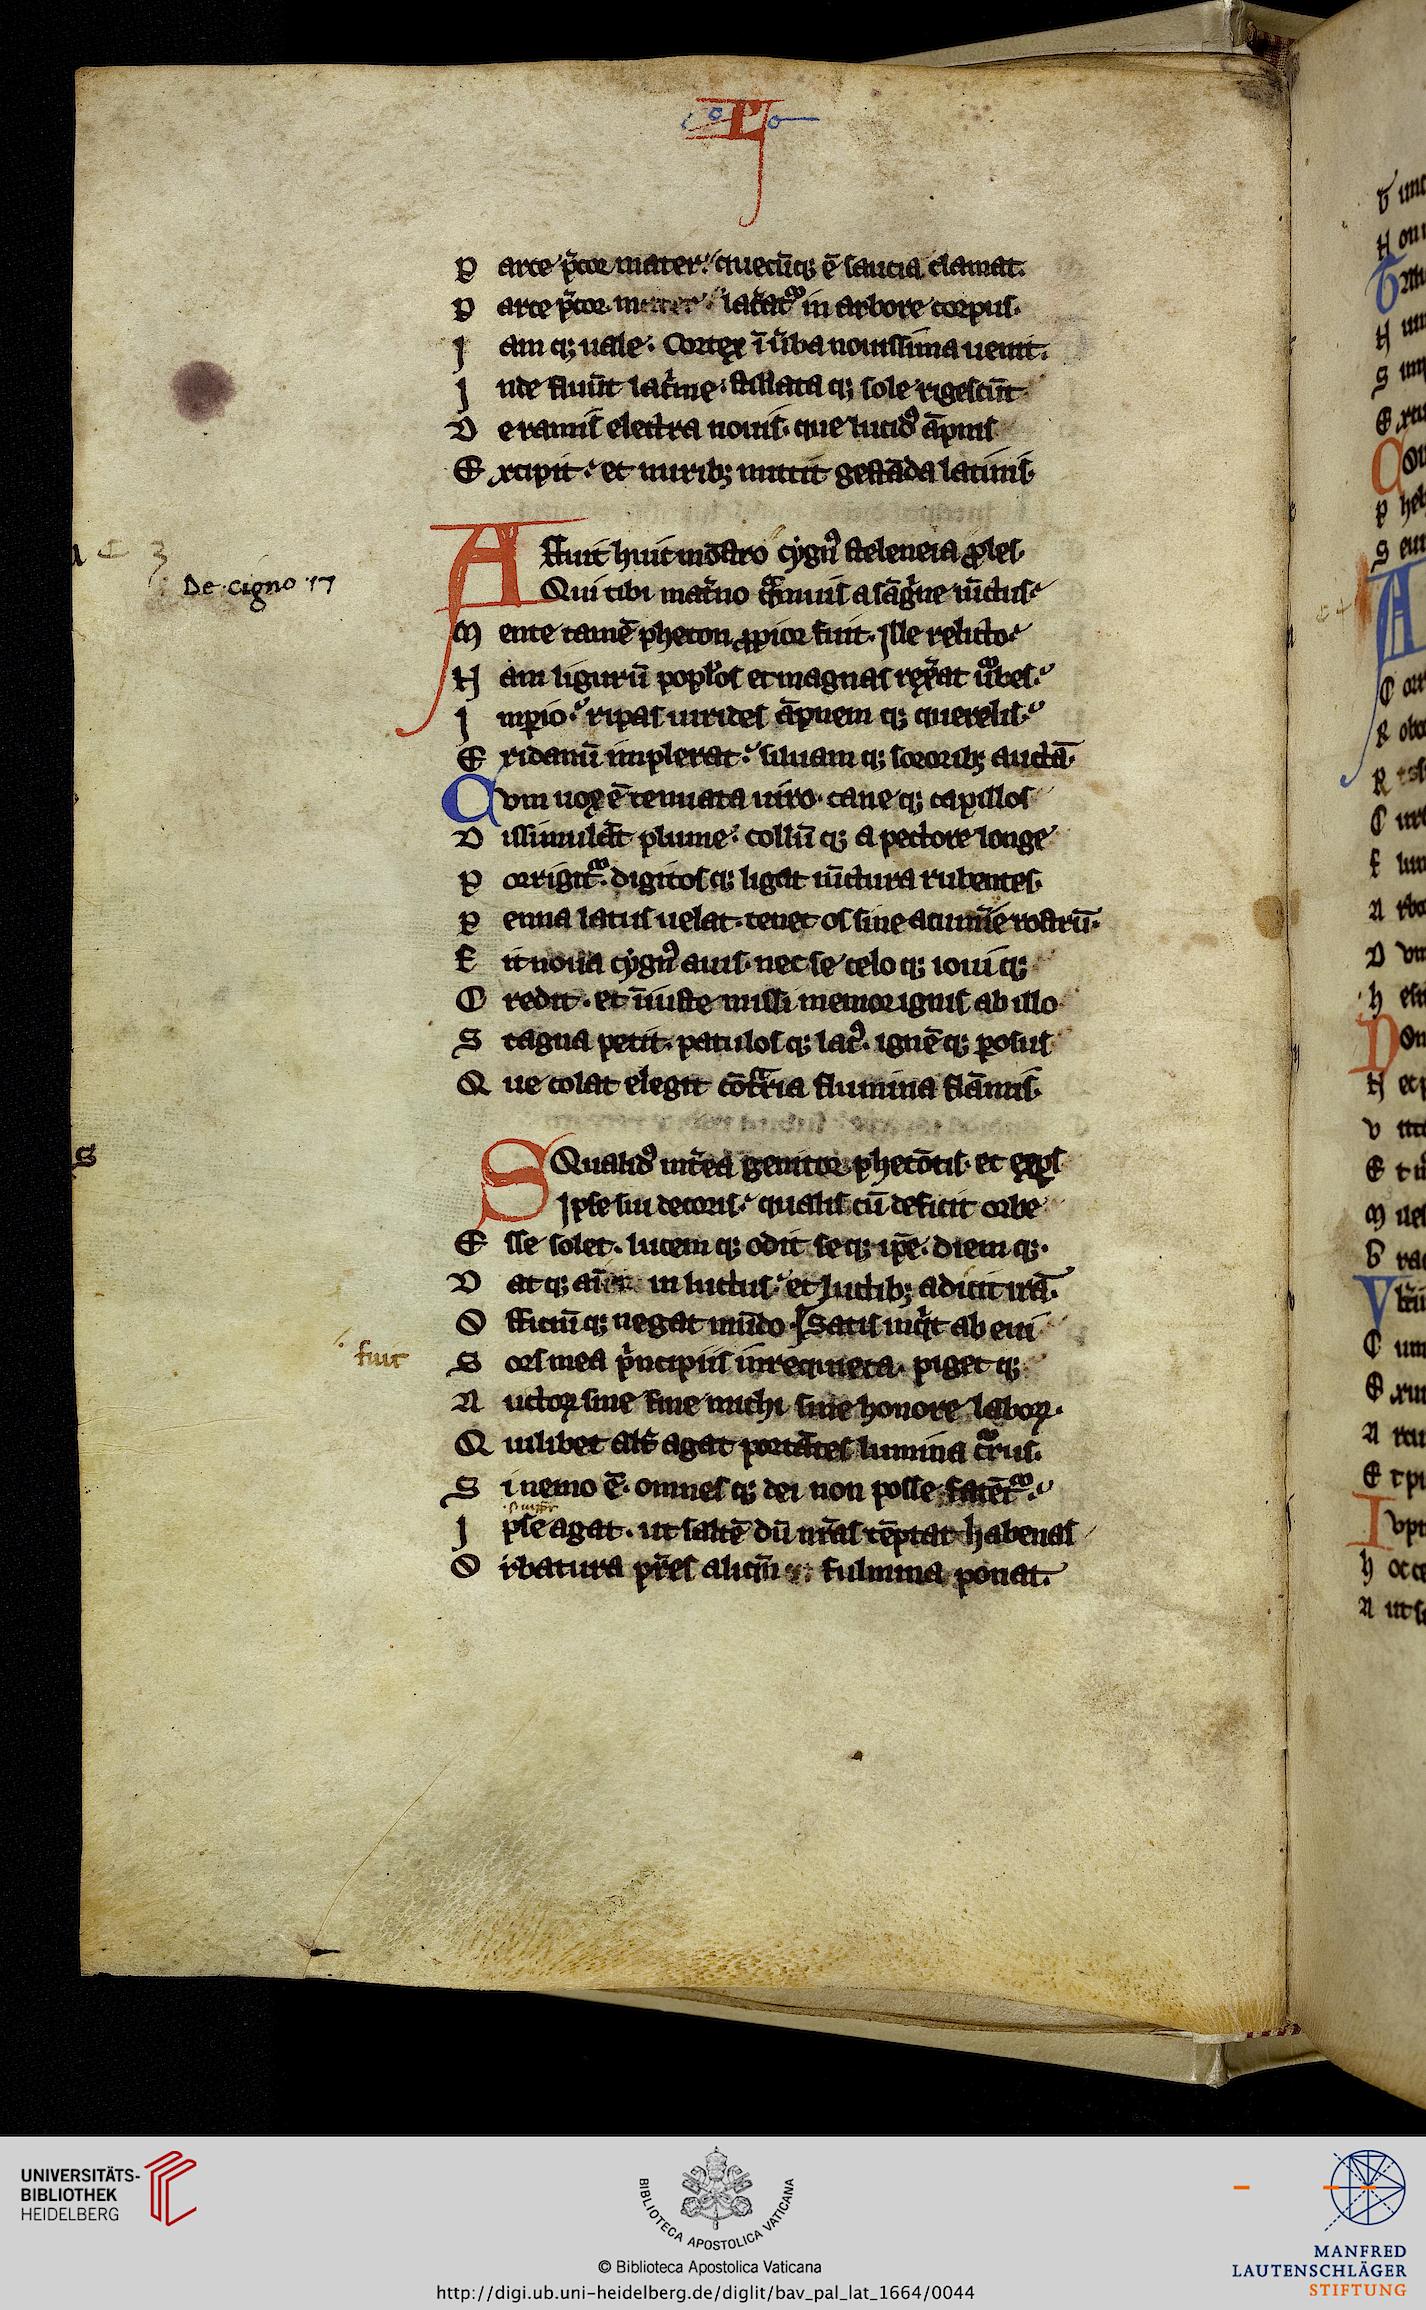 P arce p̄cor mater. quecūq; ē saucia clamat.
P arce p̄cor mater lac̄at᷑ in arbore corpus.
J am q; uale. Cortex ī ūba nouissima uenit.
J nde fluūt lac̄me. stillata q; sole rigescūt
D e ramis electra nouis. que lucidꝰ āpnis
E xcipit. et nurib; mittit gestāda latinis.
A ffuit huic mōstro cẏgnꝰ steleneia ꝓles.
De cigno 17
Qui tibi mat̄no q̄muis a sāḡne iūctus
M ente tamē pheton ꝓpior fuit. Ille relicto
N am ligurū popl̄os et magnas rex̄at u᷑bes.
J mp̄io. ripas uirides āpnem q; querelis.
E ridanū implerat. siluam q; sororib; auctā.
Cvm uox ē tenuata uiro. cane q; capillos
D issimulāt plume. collū q; a pectore longe
P orrigit᷑. digitos q; ligat iūctura rubentes.
P enna latus uelat. tenet os sine acumīe rostrū.
F it noua cẏgnꝰ auis. nec se celo q; ioui q;
C redit. et īiuste missi memor ignis ab illo
S tagna petit. patulos q; lacꝰ. ignē q; ꝑosus
Q ue colat elegit cōt̄ria flumina flāmis.
S Qualidꝰ int̄ea genitor phetōtis. et exp̄s
Ipse sui decoris. qualis cū deficit orbe
E sse solet. lucem q; odit se q; ip̄e. diem q;.
D at q; aīm in luctus. et luctib; adicit irā.
O fficiū q; negat mūdo. Satis inq̄t ab eui
fuit
S ors mea p̄ncipiis irrequieta. piget q;
A ctoꝝ sine fine michi sine honore laboꝝ.
Q uilibet alt̄ agat portātes lumina c᷑rus.
S i nemo ē. omnes q; dei non posse fatēt᷑.
J pse agat. ut saltē dū nr̄as tēptat habenas
O rbatura p̄res aliqn̄ fulmina ponat.
UNIVERSITÄTS-
BIBLIOTHEK
HEIDELBERG
BIBLIOTECA APOSTOLICA VATICANA
© Biblioteca Apostolica Vaticana
http://digi.ub.uni-heidelberg.de/diglit/bav_pal_lat_1664/0044
MANFRED
LAUTENSCHLÄGER
STIFTUNG